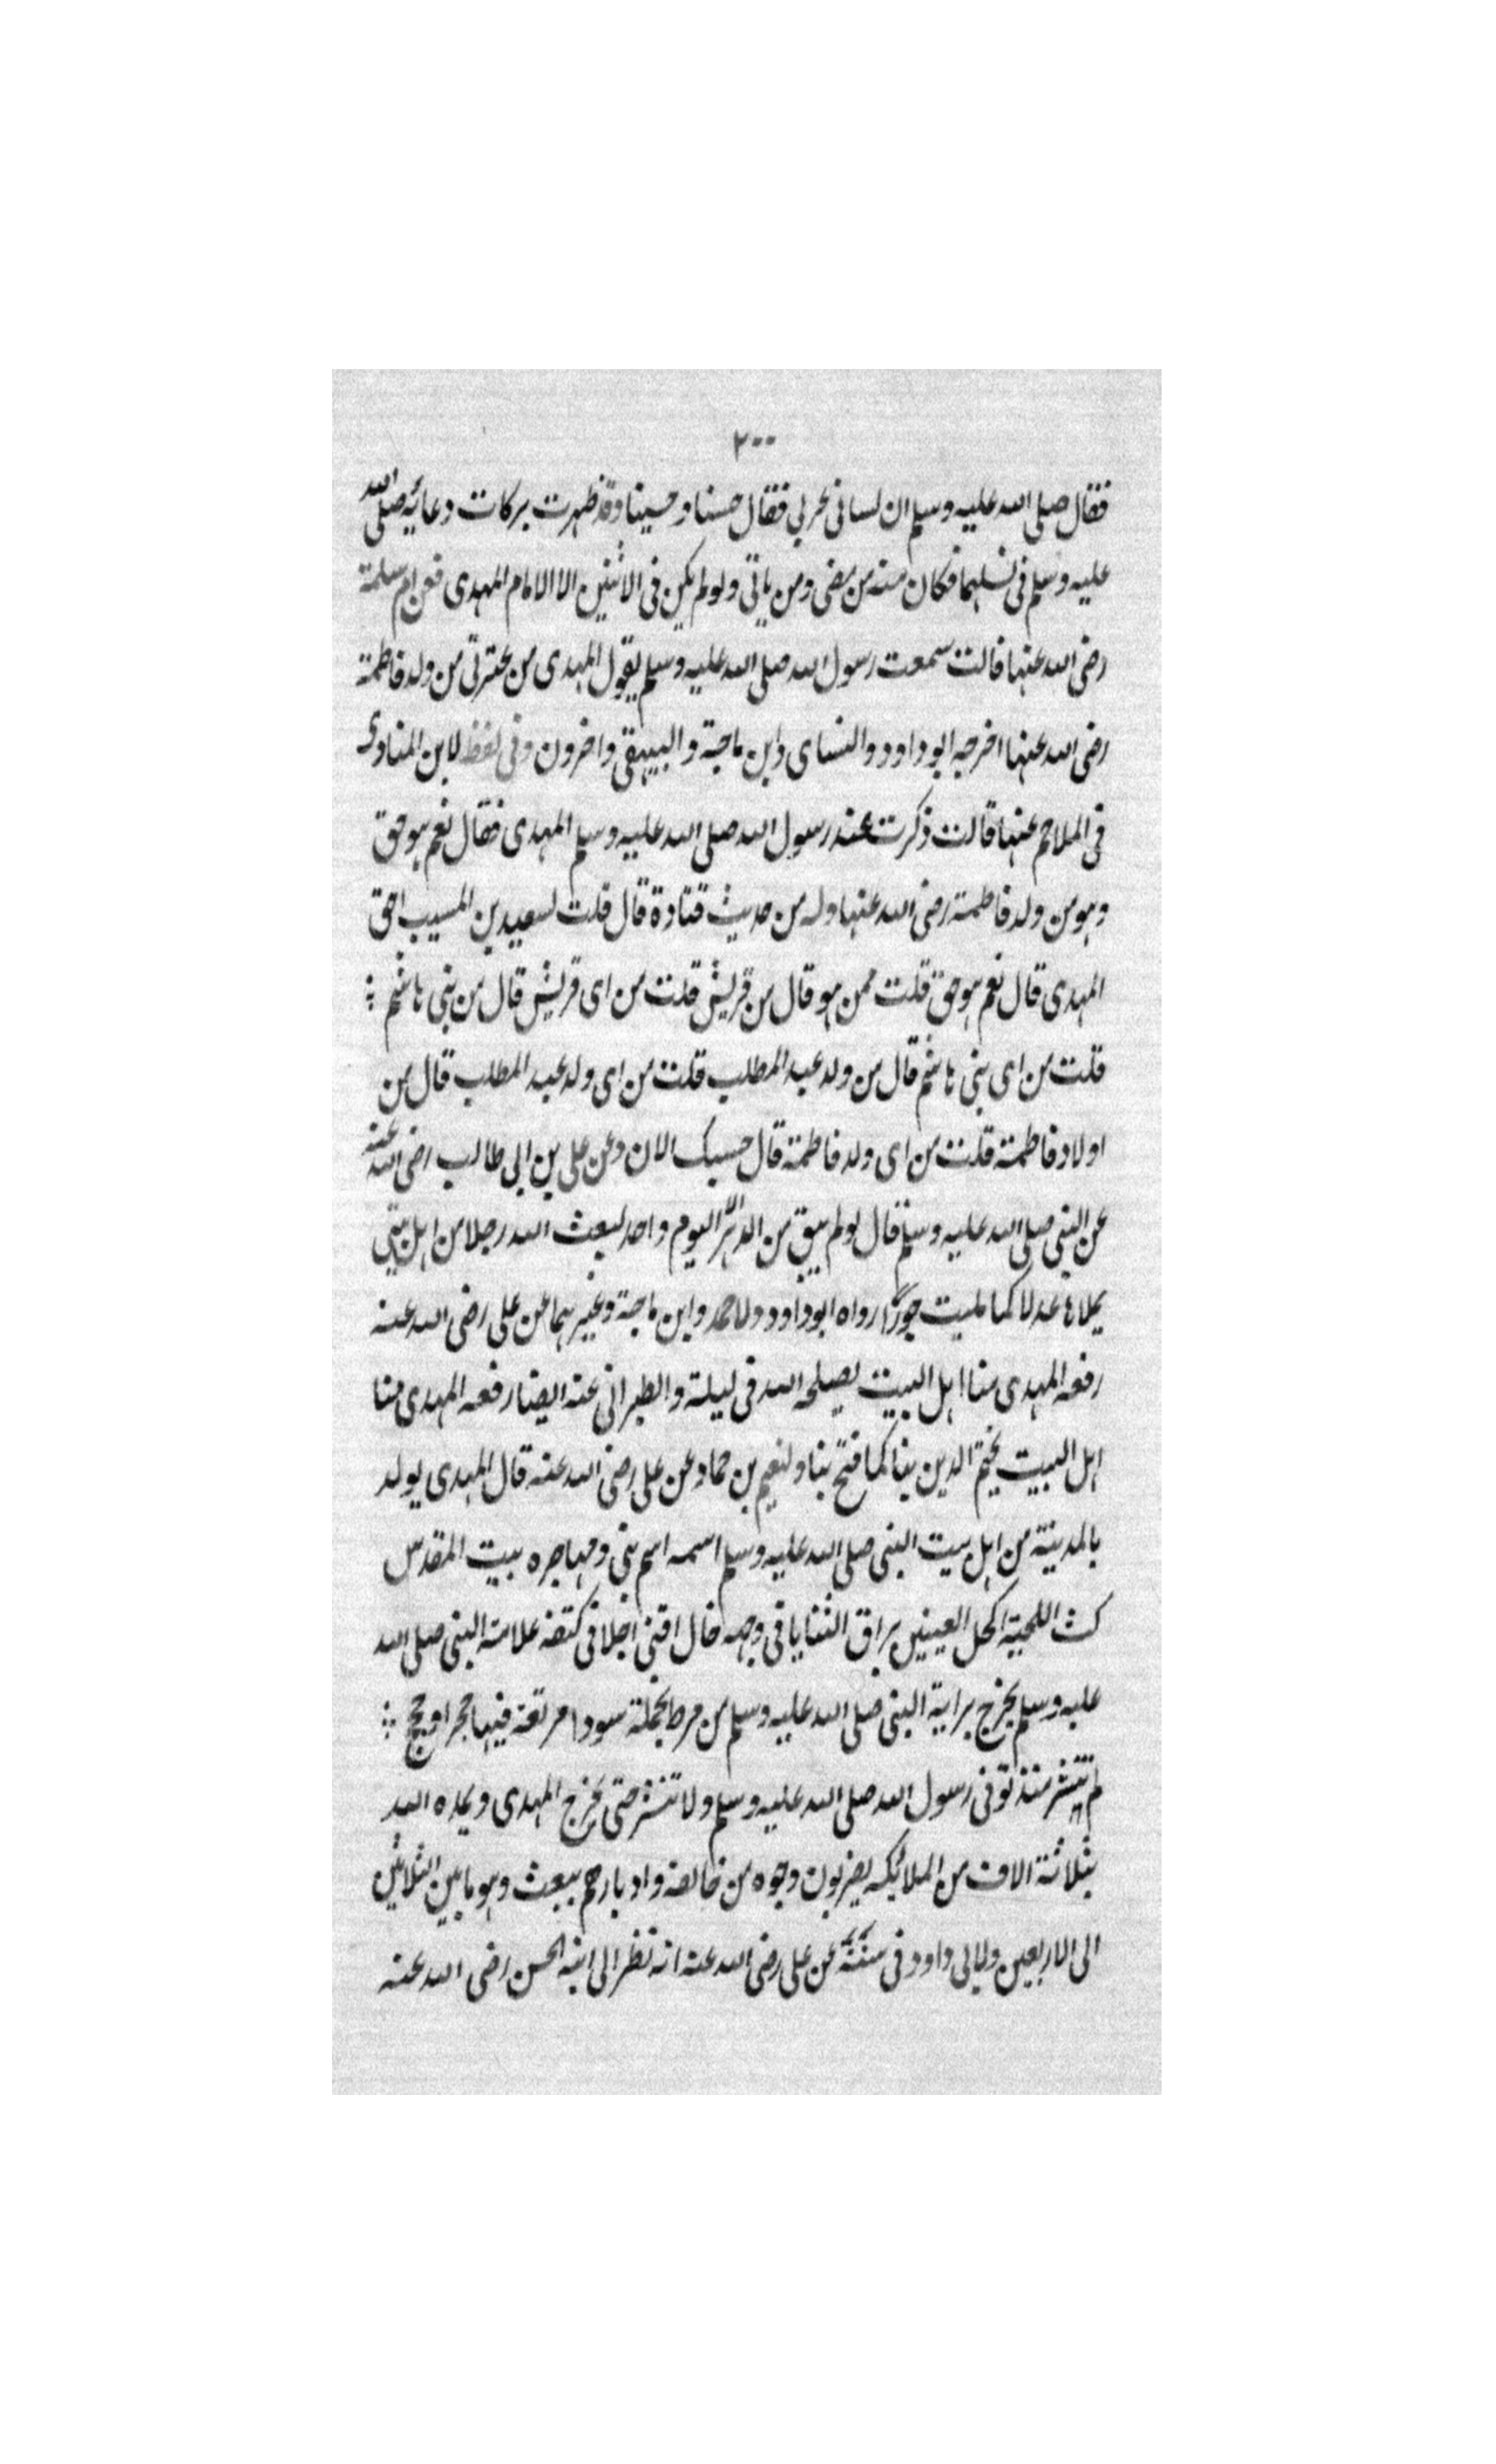 ٢٠٠
فقال صلى الله عليه وسلم ان لسانى عربي فقال حسنا وحسينا وقد ظهرت بركات دعائه صلى الله
عليه وسلم فى نسلهما فكان منه من مضى ومن ياتى ولو لم يكن فى الاثنين الا الامام المهدى فعن ام سلمة
رضى الله عنها قالت سمعت رسول الله صلى الله عليه وسلم يقول المهدى من عترتى من ولد فاطمة
رضى الله عنها اخرجه ابو داود والنساى وابن ماجة والبيهقى واخرون وفى لفظ لابن المناوى
فى الملاحم عنها قالت ذكرت عند رسول الله صلى الله عليه وسلم المهدى فقال نعم هو حق
وهو من ولد فاطمة رضى الله عنها وله من حديث قتادة قال قلت لسعيد بن المسيب احق
المهدى قال نعم هو حق قلت ممن هو قال من قريش قلت من اى قريش قال من بنى هاشم
قلت من اى بنى هاشم قال من ولد عبد المطلب قلت من اى ولد عبد المطلب قال من
اولاد فاطمة قلت من اى ولد فاطمة قال حسبك الان وعن على بن ابى طالب رضى الله عنه
عن النبى صلى الله عليه وسلم قال لو لم يبق من الدهر الا يوم واحد لبعث الله رجلا من اهل بيتى
يملاها عدلا كما مليت جورًا رواه ابو داود ولاحمد وابن ماجة وغيرهما عن على رضى الله عنه
رفعه المهدى منا اهل البيت يصلحه الله فى ليلة والطبرانى عنه ايضا رفعه المهدى منا
اهل البيت يختم الدين بنا كما فتح بنا ولنعيم بن حماد عن على رضى الله عنه قال المهدى يولد
بالمدينة من اهل بيت النبى صلى الله عليه وسلم اسمه اسم نبى ومهاجره بيت المقدس
كث اللحية اكحل العينين براق الثنايا فى وجهه خال اقنى اجلا فى كتفه علامة النبى صلى الله
عليه وسلم يخرج براية النبى صلى الله عليه وسلم من مرط مخملة سودا مربعة فيها حجر
لم تنتشر منذ توفى رسول الله صلى الله عليه وسلم ولا تنشر حتى يخرج المهدى ويمده الله
بثلاثة الاف من الملائكه يضربون وجوه من خالفه وادبارهم يبعث وهو ما بين الثلاثين
الى الاربعين ولابى داود فى سننه عن على رضى الله عنه انه نظر الى ابنه الحسن رضى الله عنه